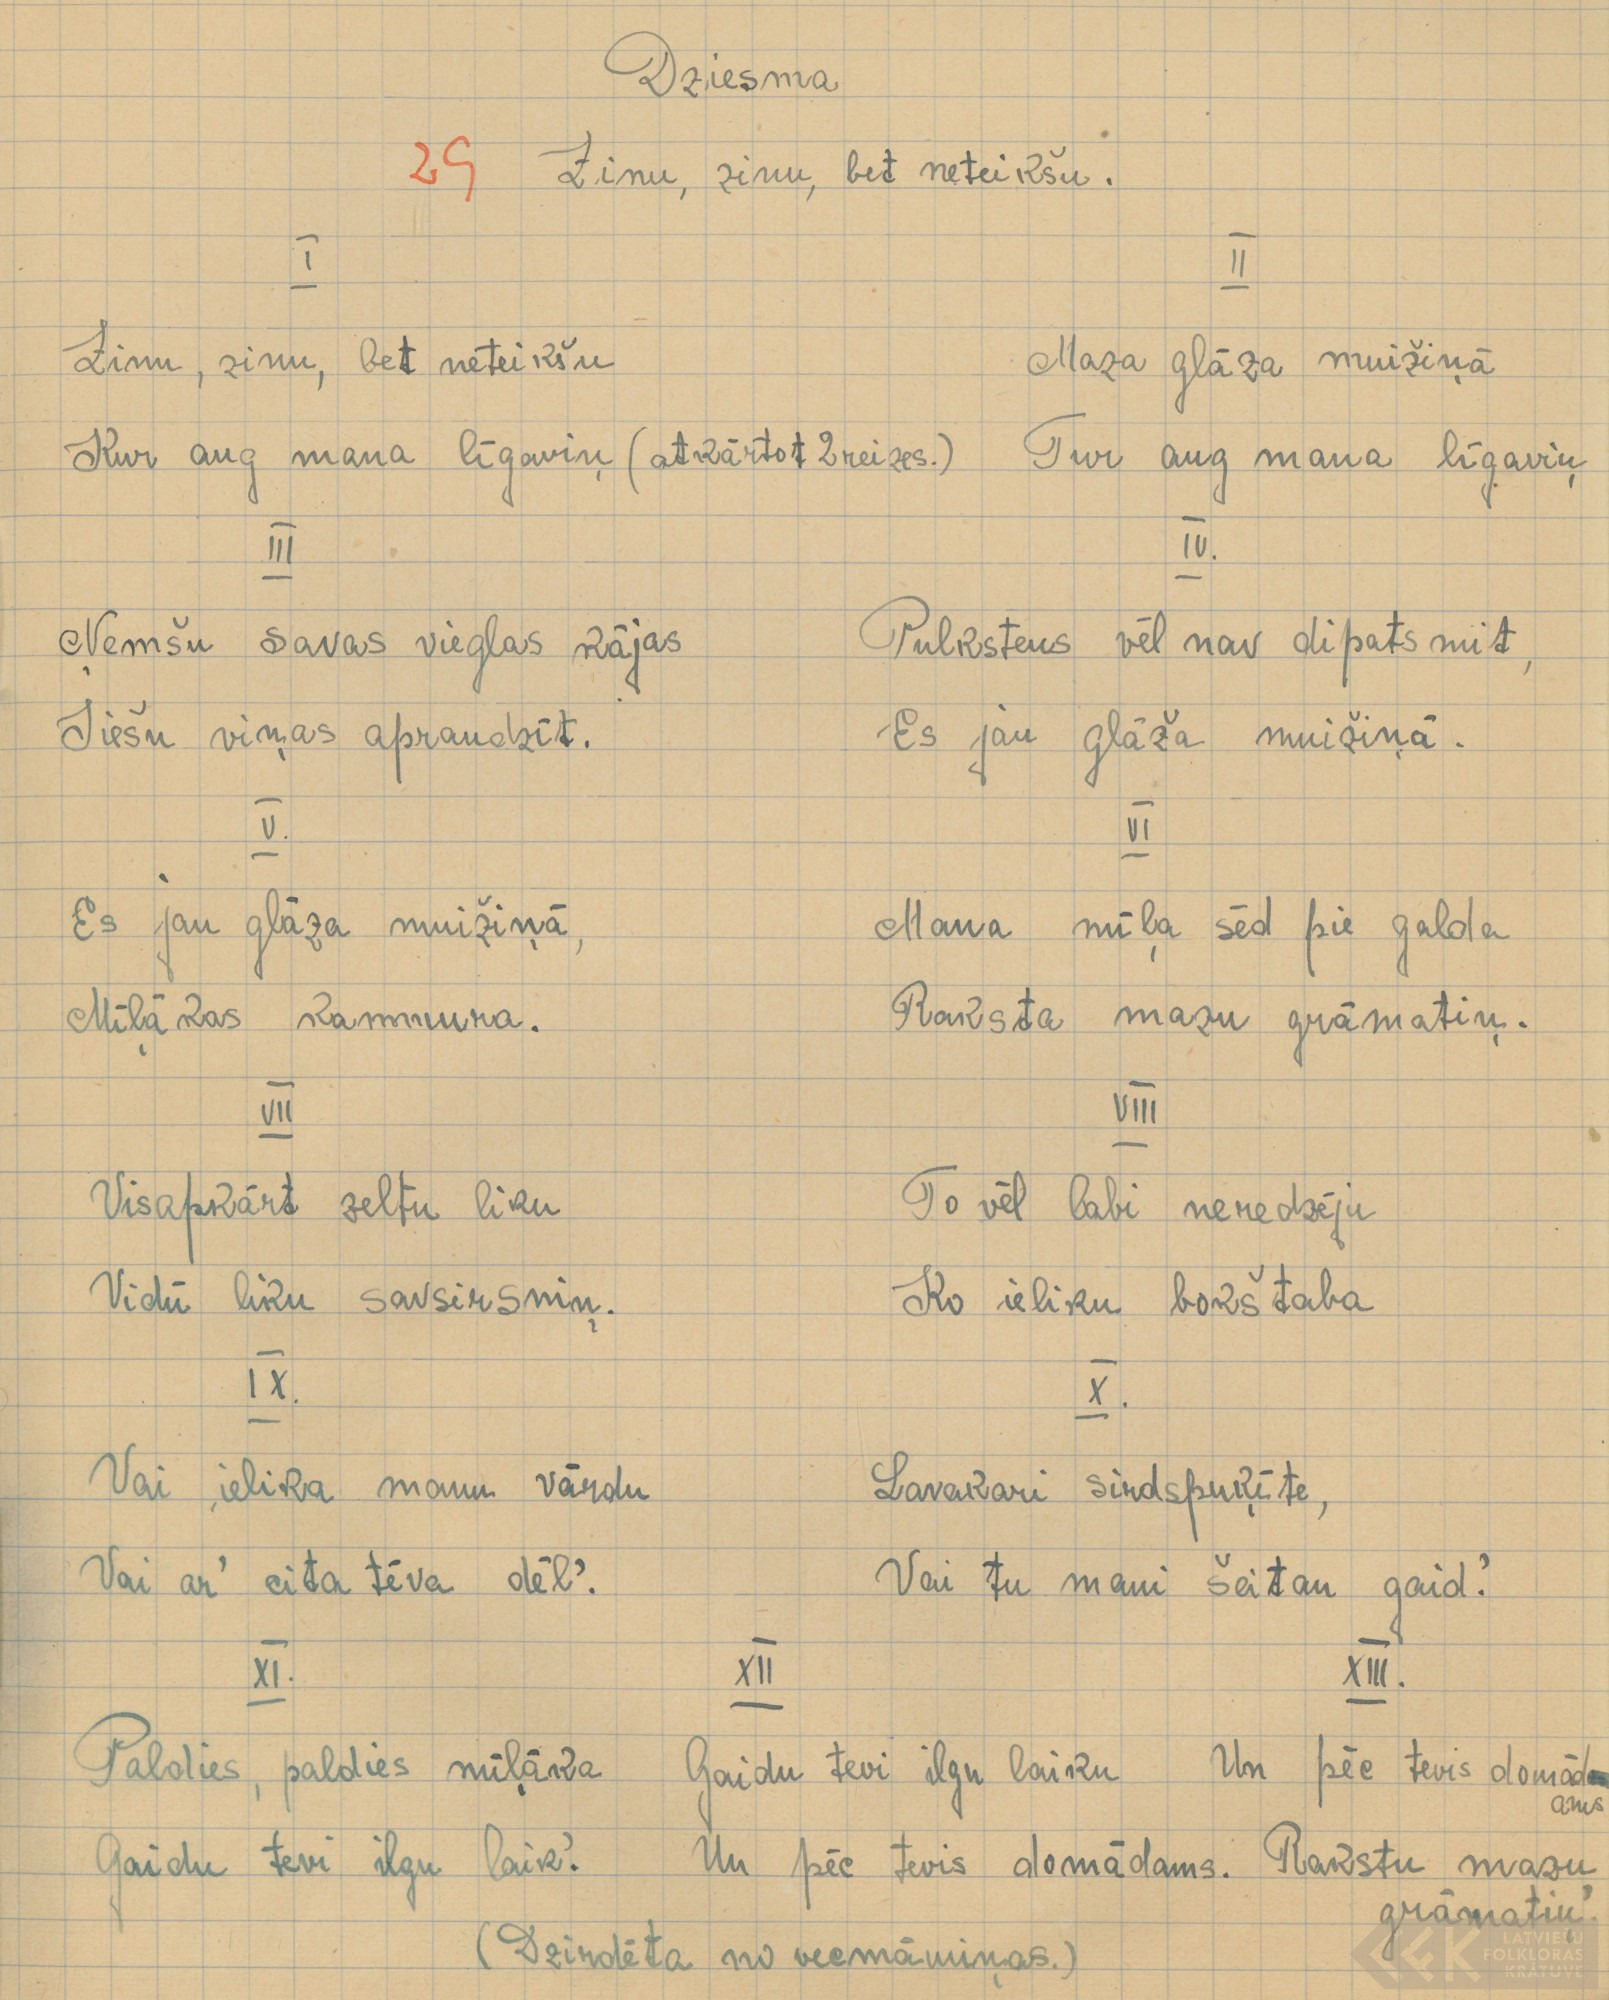 Dziesma
29 Zinu, zinu, bet neteikšu.
I
Zinu, zinu, bet neteikšu
Kur aug mana līgaviņ (atkārtot 2 reizes.)
II
Maza glāza muižiņā
Tur aug mana līgaviņ
III
Ņemšu savas vieglas kājas
Iešu viņas apraudzīt.
IV.
Pulkstens vēl nav dipatsmit,
Es jau glāža muižiņā.
V.
Es jau glāza muižiņā,
Mīļākas kammura.
VI
Mana mīļa sēd pie galda
Raksta mazu grāmatiņ.
VII
Visapkārt zeltu liku
Vidū liku savsirsniņ.
VIII
To vēl labi neredzēju
Ko ieliku bokštaba
IX.
Vai ielika manu vārdu
Vai ar' cita tēva dēl'.
X.
Lavakari sirdspuķīte,
Vai tu mani šeitan gaid.'
XI.
Paldies, paldies mīļāka
Gaidu tevi ilgu laik'.
XII
Gaidu tevi ilgu laiku
Un pēc tevis domādams.
XIII.
Un pēc tevis domād
ams
Rakstu mazu
grāmatiņ'.
(Dzirdēta no vecmāmiņas.)
LFK
LATVIEŠU
FOLKLORAS
KRĀTUVE